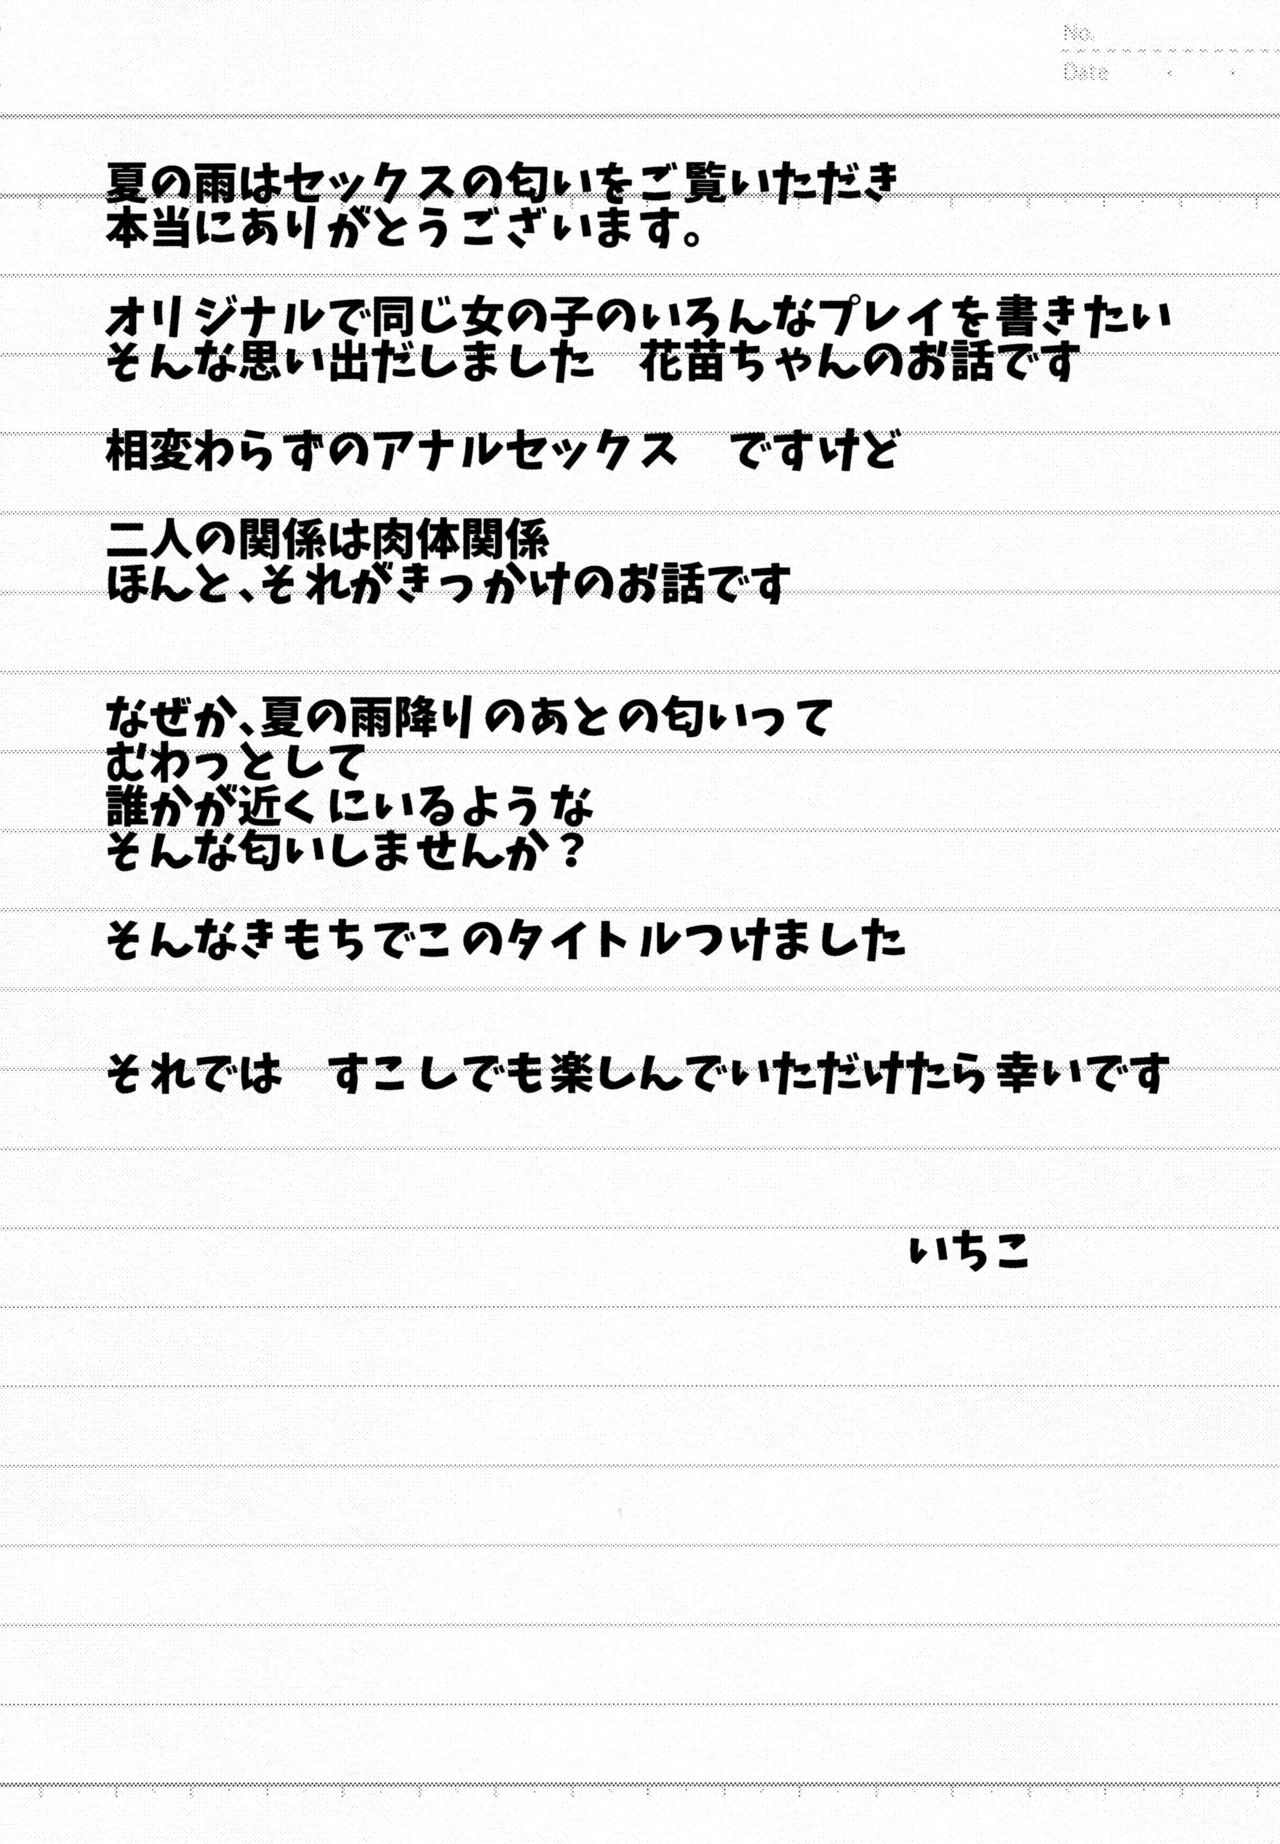 No.
Date
夏の雨はセックスの匂いをご覧いただき
本当にありがとうございます。
オリジナルで同じ女の子のいろんなプレイを書きたい
そんな思い出だしました　花苗ちゃんのお話です
相変わらずのアナルセックス　ですけど
二人の関係は肉体関係
ほんと、それがきっかけのお話です
なぜか、夏の雨降りのあとの匂いって
むわっとして
誰かが近くにいるような
そんな匂いしませんか？
そんなきもちでこのタイトルつけました
それでは　すこしでも楽しんでいただけたら幸いです
いちこ